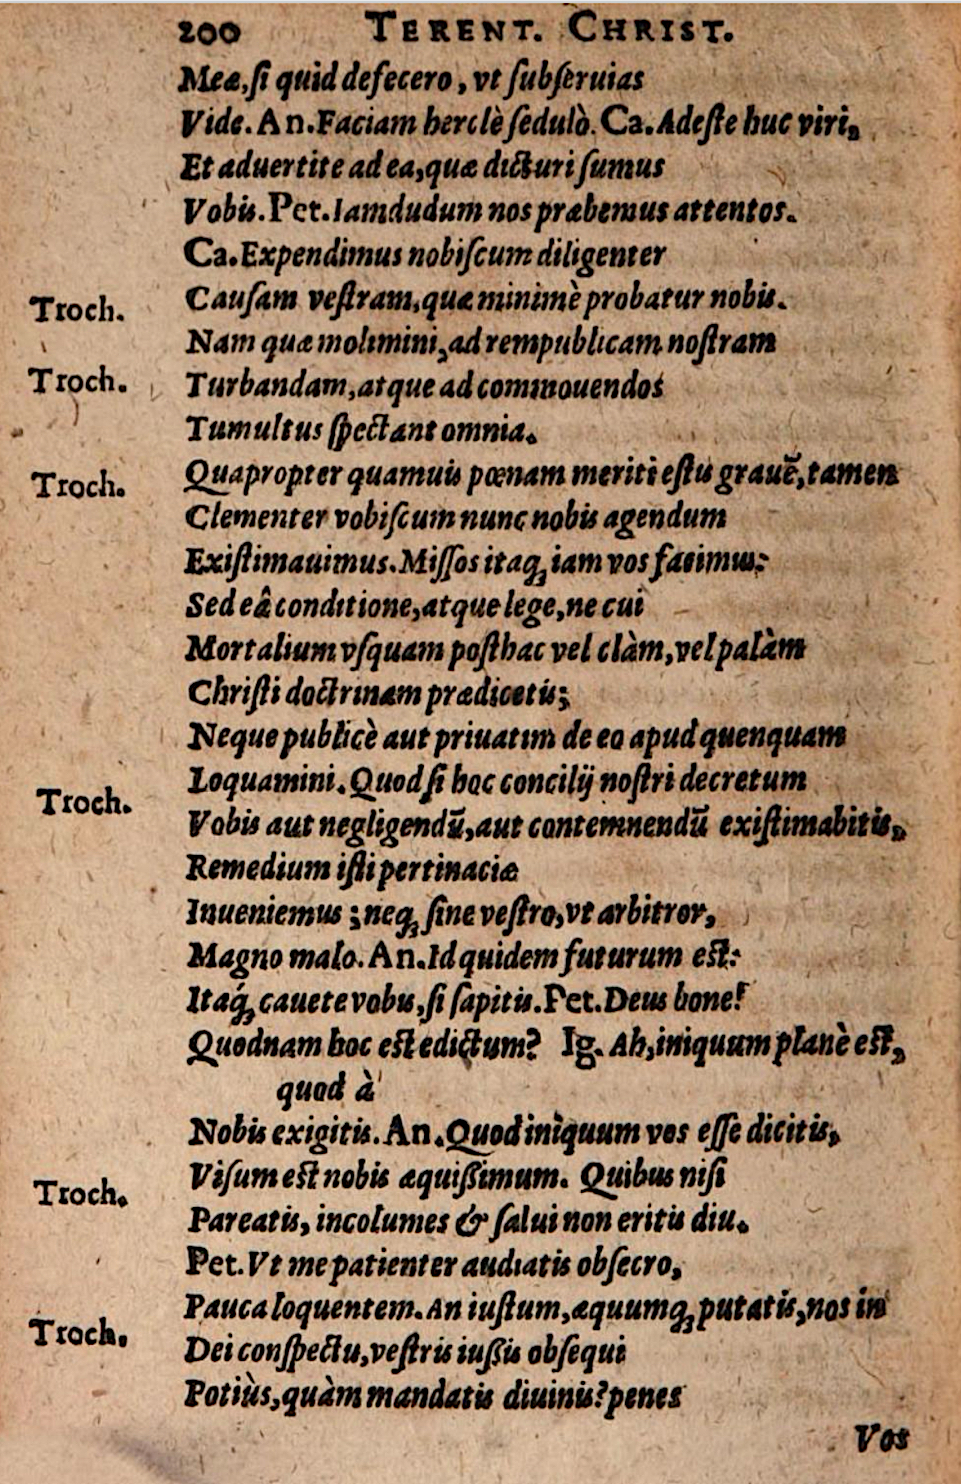 200 TERENT. CHRIST.
Meæ, ſi quid defecero, vt ſubſeruias
Vide. An. Faciam herclè ſedulò. Ca. Adeſte huc viri,
Et aduertite ad ea, quæ dicturi ſumus
Vobis. Pet. Iamdudum nos præbemus attentos.
Ca. Expendimus nobiſcum diligenter
Troch. Cauſam veſtram, quæ minimè probatur nobis.
Nam quæ molimini, ad rempublicam noſtram
Troch. Turbandam, atque ad commouendos
Tumultus ſpectant omnia.
Troch. Quapropter quamuis pœnam meriti eſtis grauē, tamen
Clementer vobiſcum nunc nobis agendum
Exiſtimauimus. Miſſos itaq; iam vos facimus:
Sed eâ conditione, atque lege, ne cui
Mortalium vſquam poſthac vel clàm, vel palàm
Chriſti doctrinam prædicetis;
Neque publicè aut priuatim de eo apud quenquam
Loquamini. Quod ſi hoc concilij noſtri decretum
Troch. Vobis aut negligendū, aut contemnendū exiſtimabitis,
Remedium iſti pertinaciæ
Inueniemus; neq; ſine veſtro, vt arbitror,
Magno malo. An. Id quidem futurum eſt:
Itaq́; cauete vobis, ſi ſapitis. Pet. Deus bone!
Quodnam hoc eſt edictum? Ig. Ah, iniquum planè eſt,
quod à
Nobis exigitis. An. Quod iniquum vos eſſe dicitis,
Troch. Viſum eſt nobis æquiſſimum. Quibus niſi
Pareatis, incolumes & ſalui non eritis diu.
Pet. Vt me patienter audiatis obſecro,
Pauca loquentem. An iuſtum, æquumq; putatis, nos in
Troch. Dei conſpectu, veſtris iuſſis obſequi
Potiùs, quàm mandatis diuinis? penes
Vos